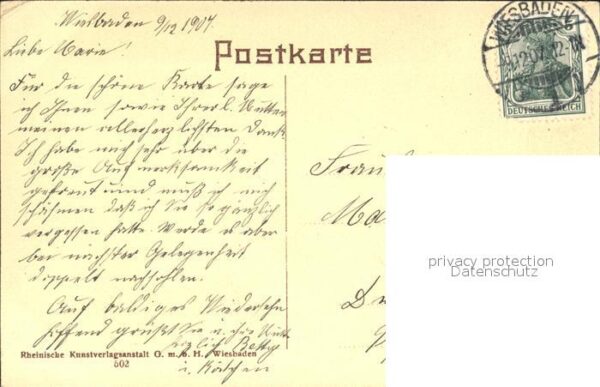 Wiesbaden 9/12 1907.
Liebe Marie!
Postkarte
Für die schöne Karte sage
ich Ihnen sowie Ihrer l. Mutter
meinen allerherzlichsten Dank.
Ich habe mich sehr über die
große Aufmerksamkeit
gefreut und muß ich mich
schämen daß ich Sie so gänzlich
vergessen hatte. Werde es aber
bei nächster Gelegenheit
doppelt nachholen.
Auf baldiges Wiedersehn
hoffend grüßt Sie u. Ihre Mutt
herzlich
u.
Rheinische Kunstverlagsanstalt G. m. b. H. Wiesbaden
502
WIESBADEN
DEUTSCHES REICH
Frau
Ma
privacy protection
Datenschutz